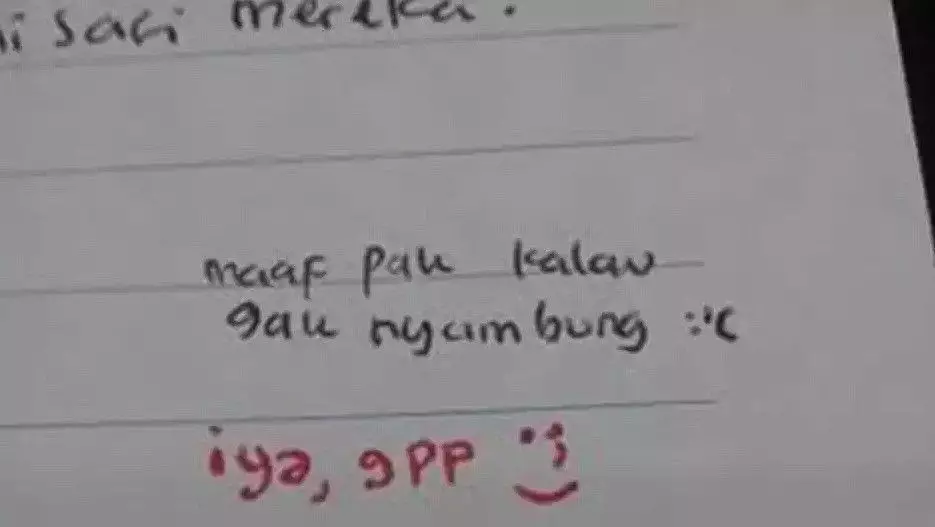 saci mereka.
maaf pak kalau
gak nyambung :'(
iya, gpp :)